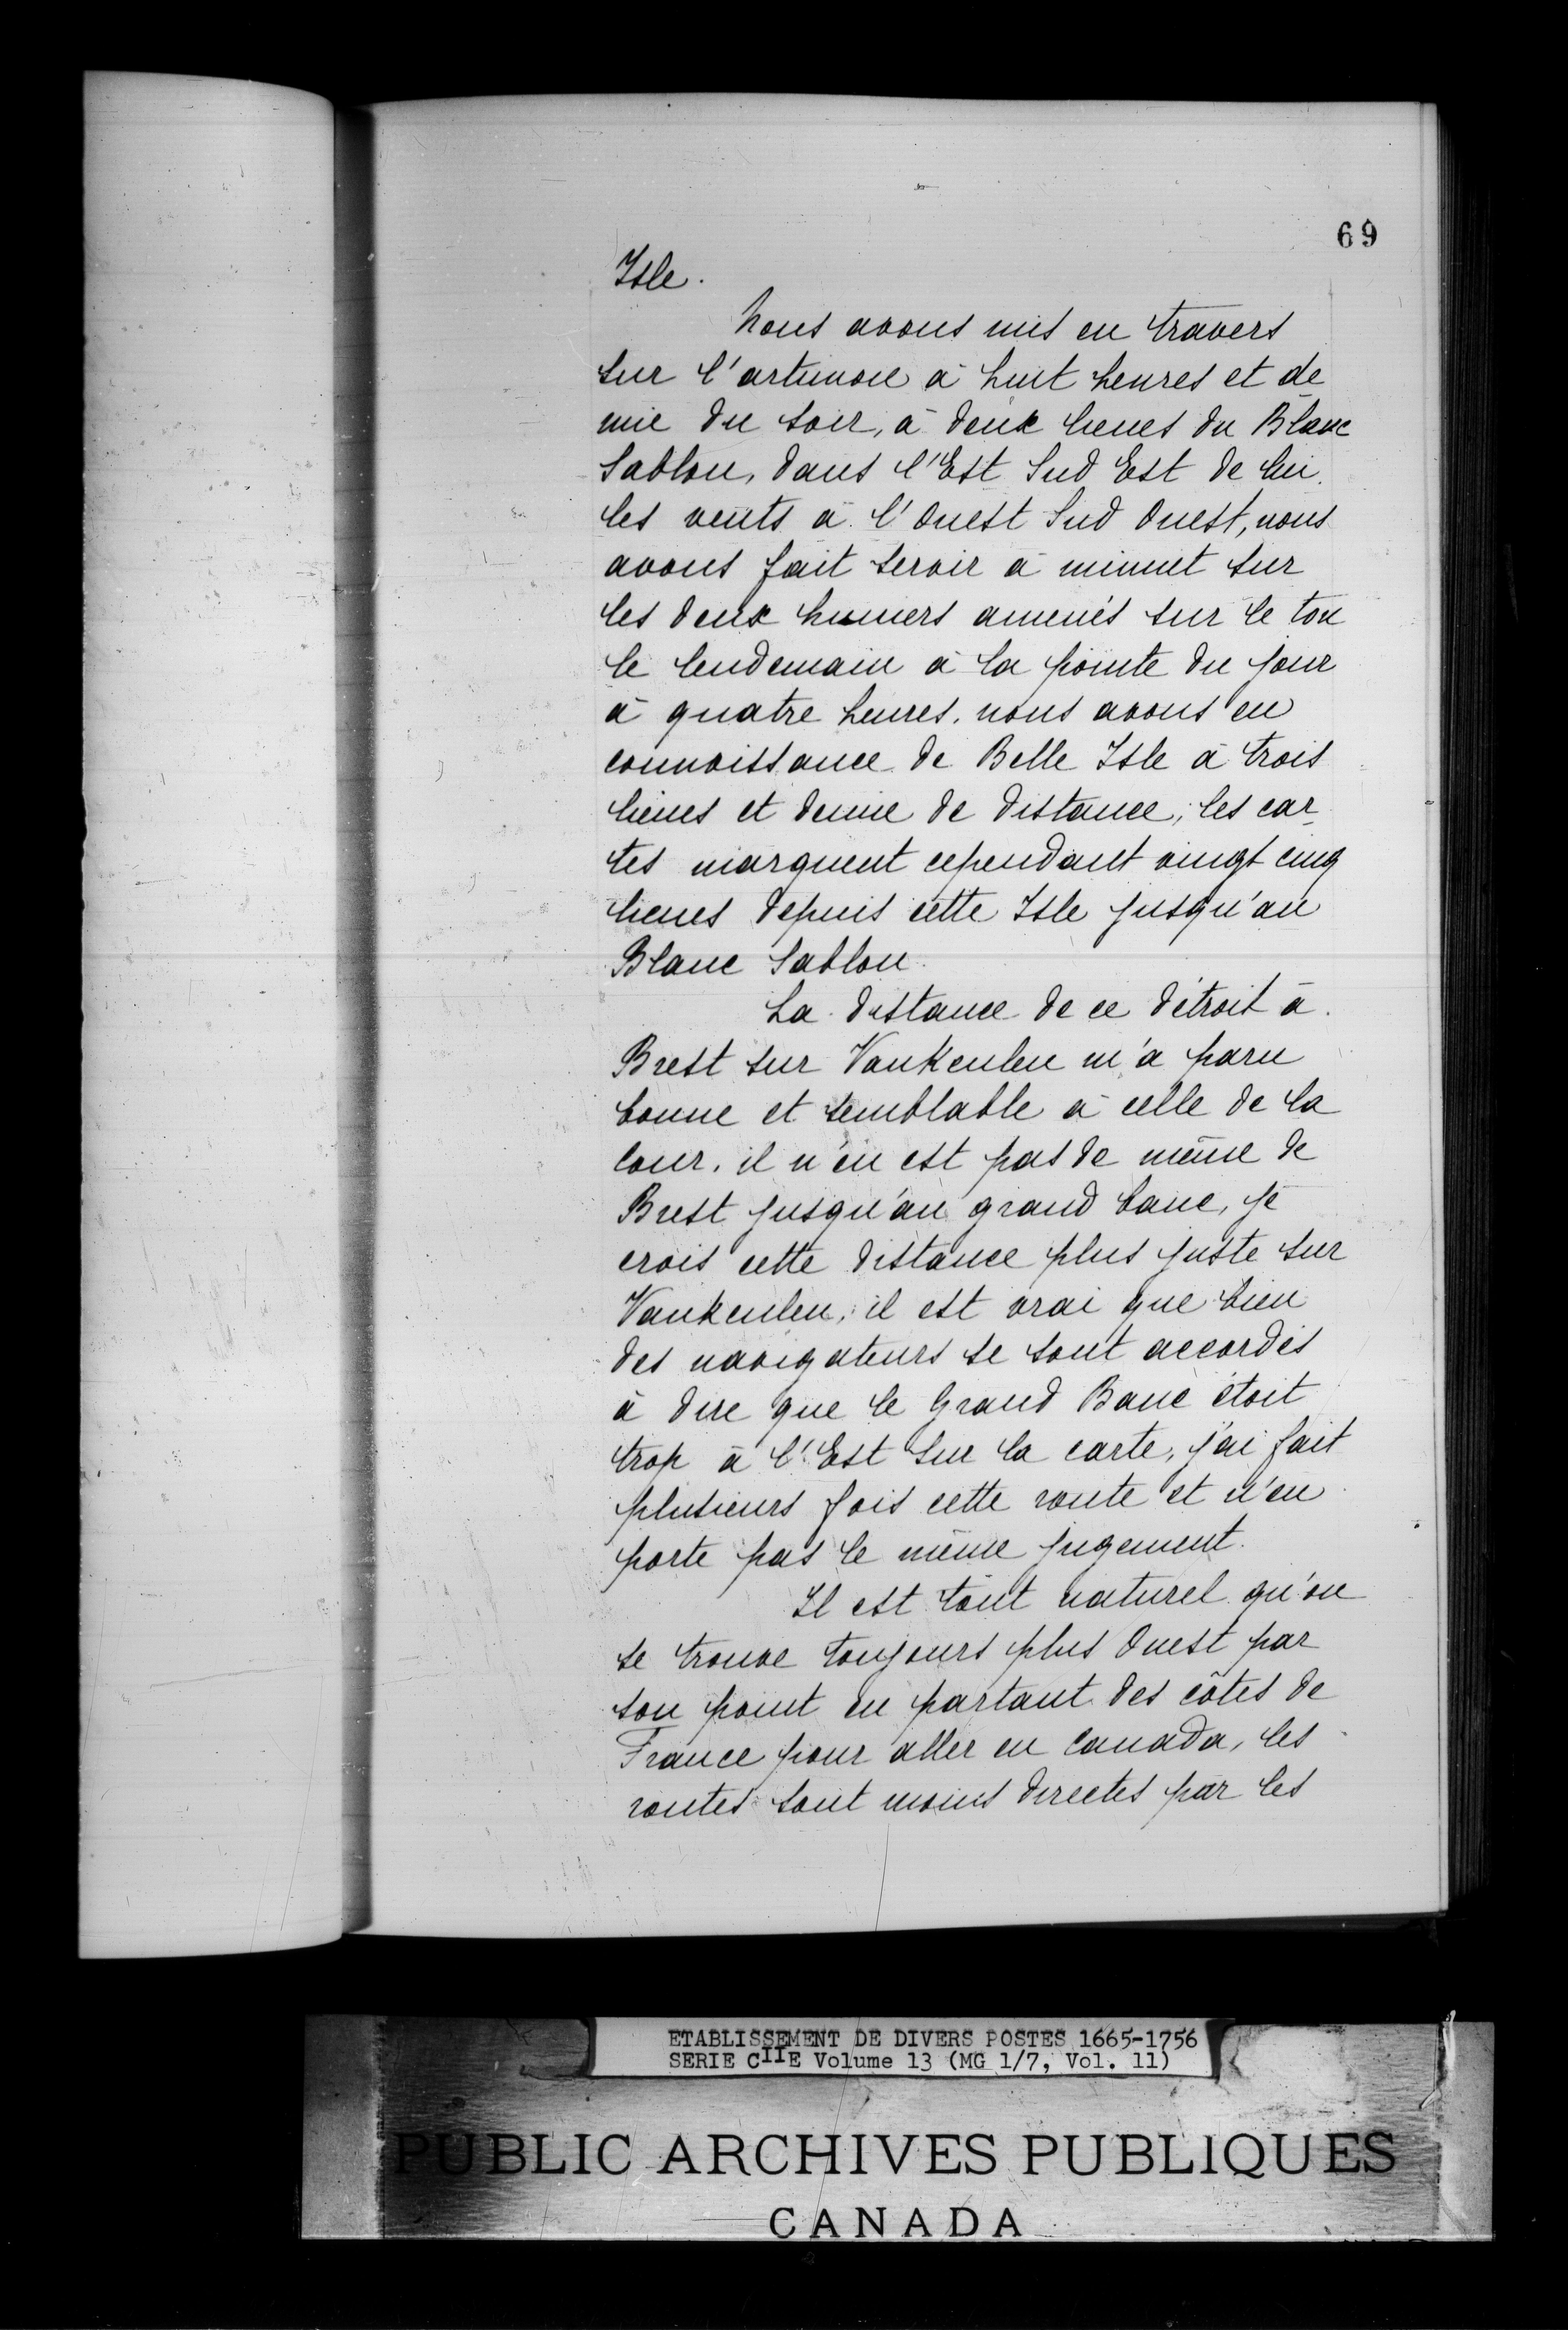 69
Isle.
Nous avons mis en travers
sur l'artimon à huit heures et de
mie du soir, à deux lieues du Blanc
Sablon, dans l'Est Sud Est de lui.
les vents à l'Ouest Sud Ouest, nous
avons fait servir à minuit sur
les deux huniers amenés sur le ton
le lendemain à la pointe du jour
à quatre heures, nous avons eu
connoissance de Belle Isle à trois
lieues et demie de distance, les car
tes marquent cependant vingt cinq
lieues depuis cette Isle jusqu'au
Blanc Sablon.
La distance de ce détroit à
Brest sur Vankeulen m'a paru
bonne et semblable à celle de la
Cour, il n'en est pas de même de
Brest jusqu'au grand banc, je
crois cette distance plus juste sur
Vankeulen, il est vrai que bien
des navigateurs se sont accordés
à dire que le Grand Banc étoit
trop à l'Est sur la carte, j'ai fait
plusieurs fois cette route et n'en
porte pas le même jugement.
Il est tout naturel qu'on
se trouve toujours plus Ouest par
son point en partant des côtes de
France pour aller en Canada, les
routes sont moins directes par les
ETABLISSEMENT DE DIVERS POSTES 1665-1756
SERIE CIIE Volume 13 (MG 1/7, Vol. 11)
PUBLIC ARCHIVES PUBLIQUES
CANADA